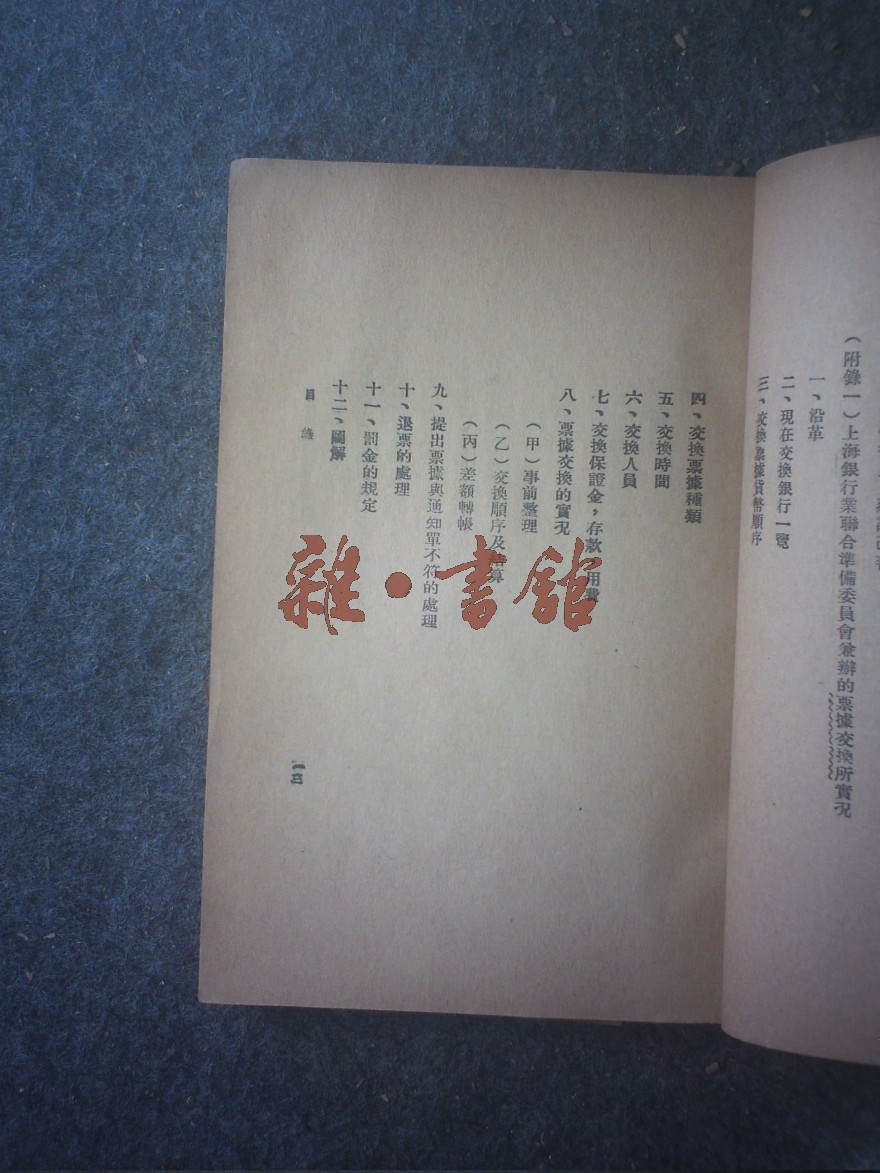 (附錄一)上海銀行業聯合準備委員會兼辦的票據交換所實况
一、沿革
二、現在交換銀行一覽
三、交換票據貨幣順序
四、交換票據種類
五、交換時間
六、交換人員
七、交換保證金,存款用費
八、票據交換的實况
(甲)事前整理
(乙)交換順序及結算
(丙)差額轉帳
九、提出票據與通知單不符的處理
十、退票的處理
十一、罰金的規定
十二、圖解
目錄
一三
雜·書館